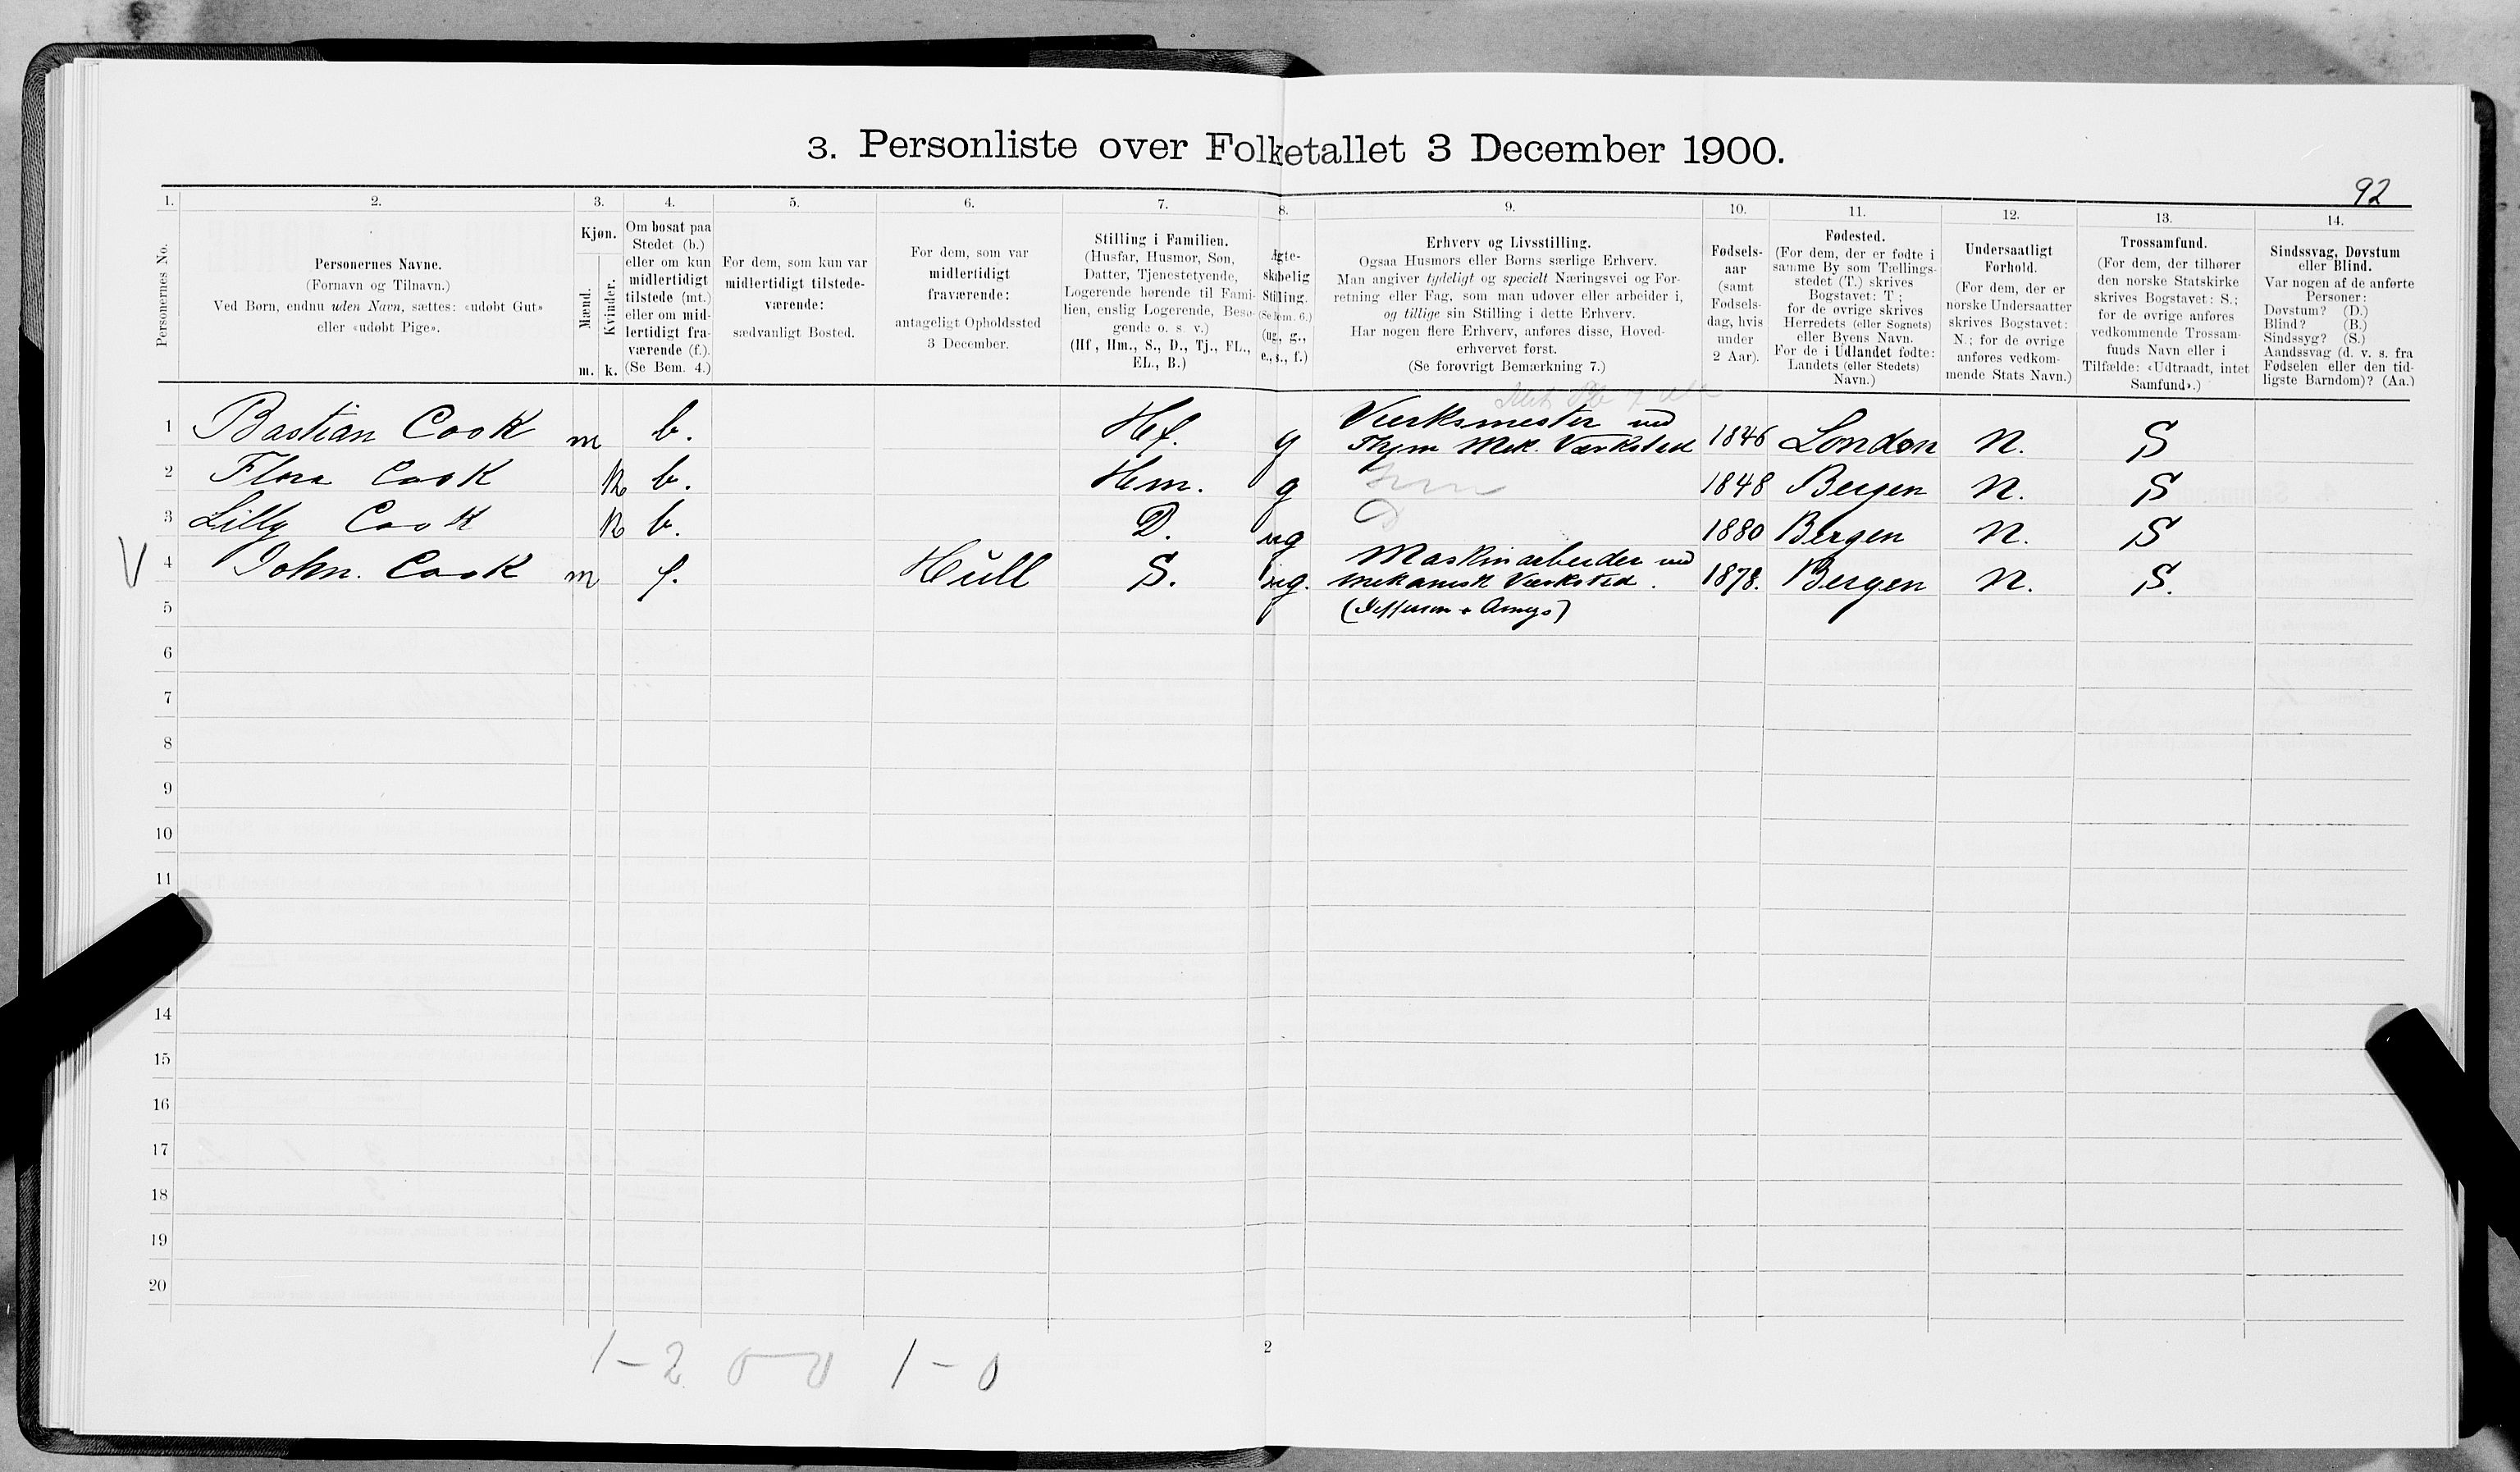 3. Personliste over Folketallet 3 December 1900.
92
1. 2. 3. 4. 5. 6. 7. 8. 9. 10. 11. 12. 13. 14.
Personernes No.
Personernes Navne.
(Fornavn og Tilnavn.)
Ved Børn, endnu uden Navn, sættes: «udøbt Gut»
eller «udøbt Pige».
Kjøn.
Mænd.
Kvinder.
m. k.
Om bosat paa
Stedet (b.)
eller om kun
midlertidigt
tilstede (mt.)
eller om mid-
lertidigt fra-
værende (f.).
(Se Bem. 4.)
For dem, som kun var
midlertidigt tilstede-
værende:
sædvanligt Bosted.
For dem, som var
midlertidigt
fraværende:
antageligt Opholdssted
3 December.
Stilling i Familien.
(Husfar, Husmor, Søn,
Datter, Tjenestetyende,
Logerende hørende til Fami-
lien, enslig Logerende, Besø-
gende o. s. v.)
(Hf, Hm., S., D., Tj., FL.,
EL., B.)
Ægte-
skabelig
Stilling.
(Se Bem. 6.)
(ug., g.,
e., s., f.)
Erhverv og Livsstilling.
Ogsaa Husmors eller Børns særlige Erhverv.
Man angiver tydeligt og specielt Næringsvei og For-
retning eller Fag, som man udøver eller arbeider i,
og tillige sin Stilling i dette Erhverv.
Har nogen flere Erhverv, anføres disse, Hoved-
erhvervet først.
(Se forøvrigt Bemærkning 7.)
Fødsels-
aar
(samt
Fødsels-
dag, hvis
under
2 Aar).
Fødested.
(For dem, der er fødte i
samme By som Tællings-
stedet (T.) skrives
Bogstavet: T;
for de øvrige skrives
Herredets (eller Sognets)
eller Byens Navn.
For de i Udlandet fødte:
Landets (eller Stedets)
Navn.)
Undersaatligt
Forhold.
(For dem, der er
norske Undersaatter
skrives Bogstavet:
N.; for de øvrige
anføres vedkom-
mende Stats Navn.)
Trossamfund.
(For dem, der tilhører
den norske Statskirke
skrives Bogstavet: S.;
for de øvrige anføres
vedkommende Trossam-
funds Navn eller i
Tilfælde: «Udtraadt, intet
Samfund».)
Sindssvag, Døvstum
eller Blind.
Var nogen af de anførte
Personer:
Døvstum? (D.)
Blind? (B.)
Sindssyg? (S.)
Aandssvag (d. v. s. fra
Fødselen eller den tid-
ligste Barndom)? (Aa.)
1 Bastian Cook m b. Hf. g Værksmester ved
Mek. Værksted 1846 London N. S
2 Flora Cook k b. Hm. g 1848 Bergen N. S
3 Lilly Cook k b. D. ug 1880 Bergen N. S
V 4 John. Cook m f. Hull S. ug. Maskinarbeider ved
mekanisk Værksted. 1878. Bergen N. S.
5
6
7
8
9
10
11
14
15
16
17
18
19
20
1-2 0-0 1-0
2